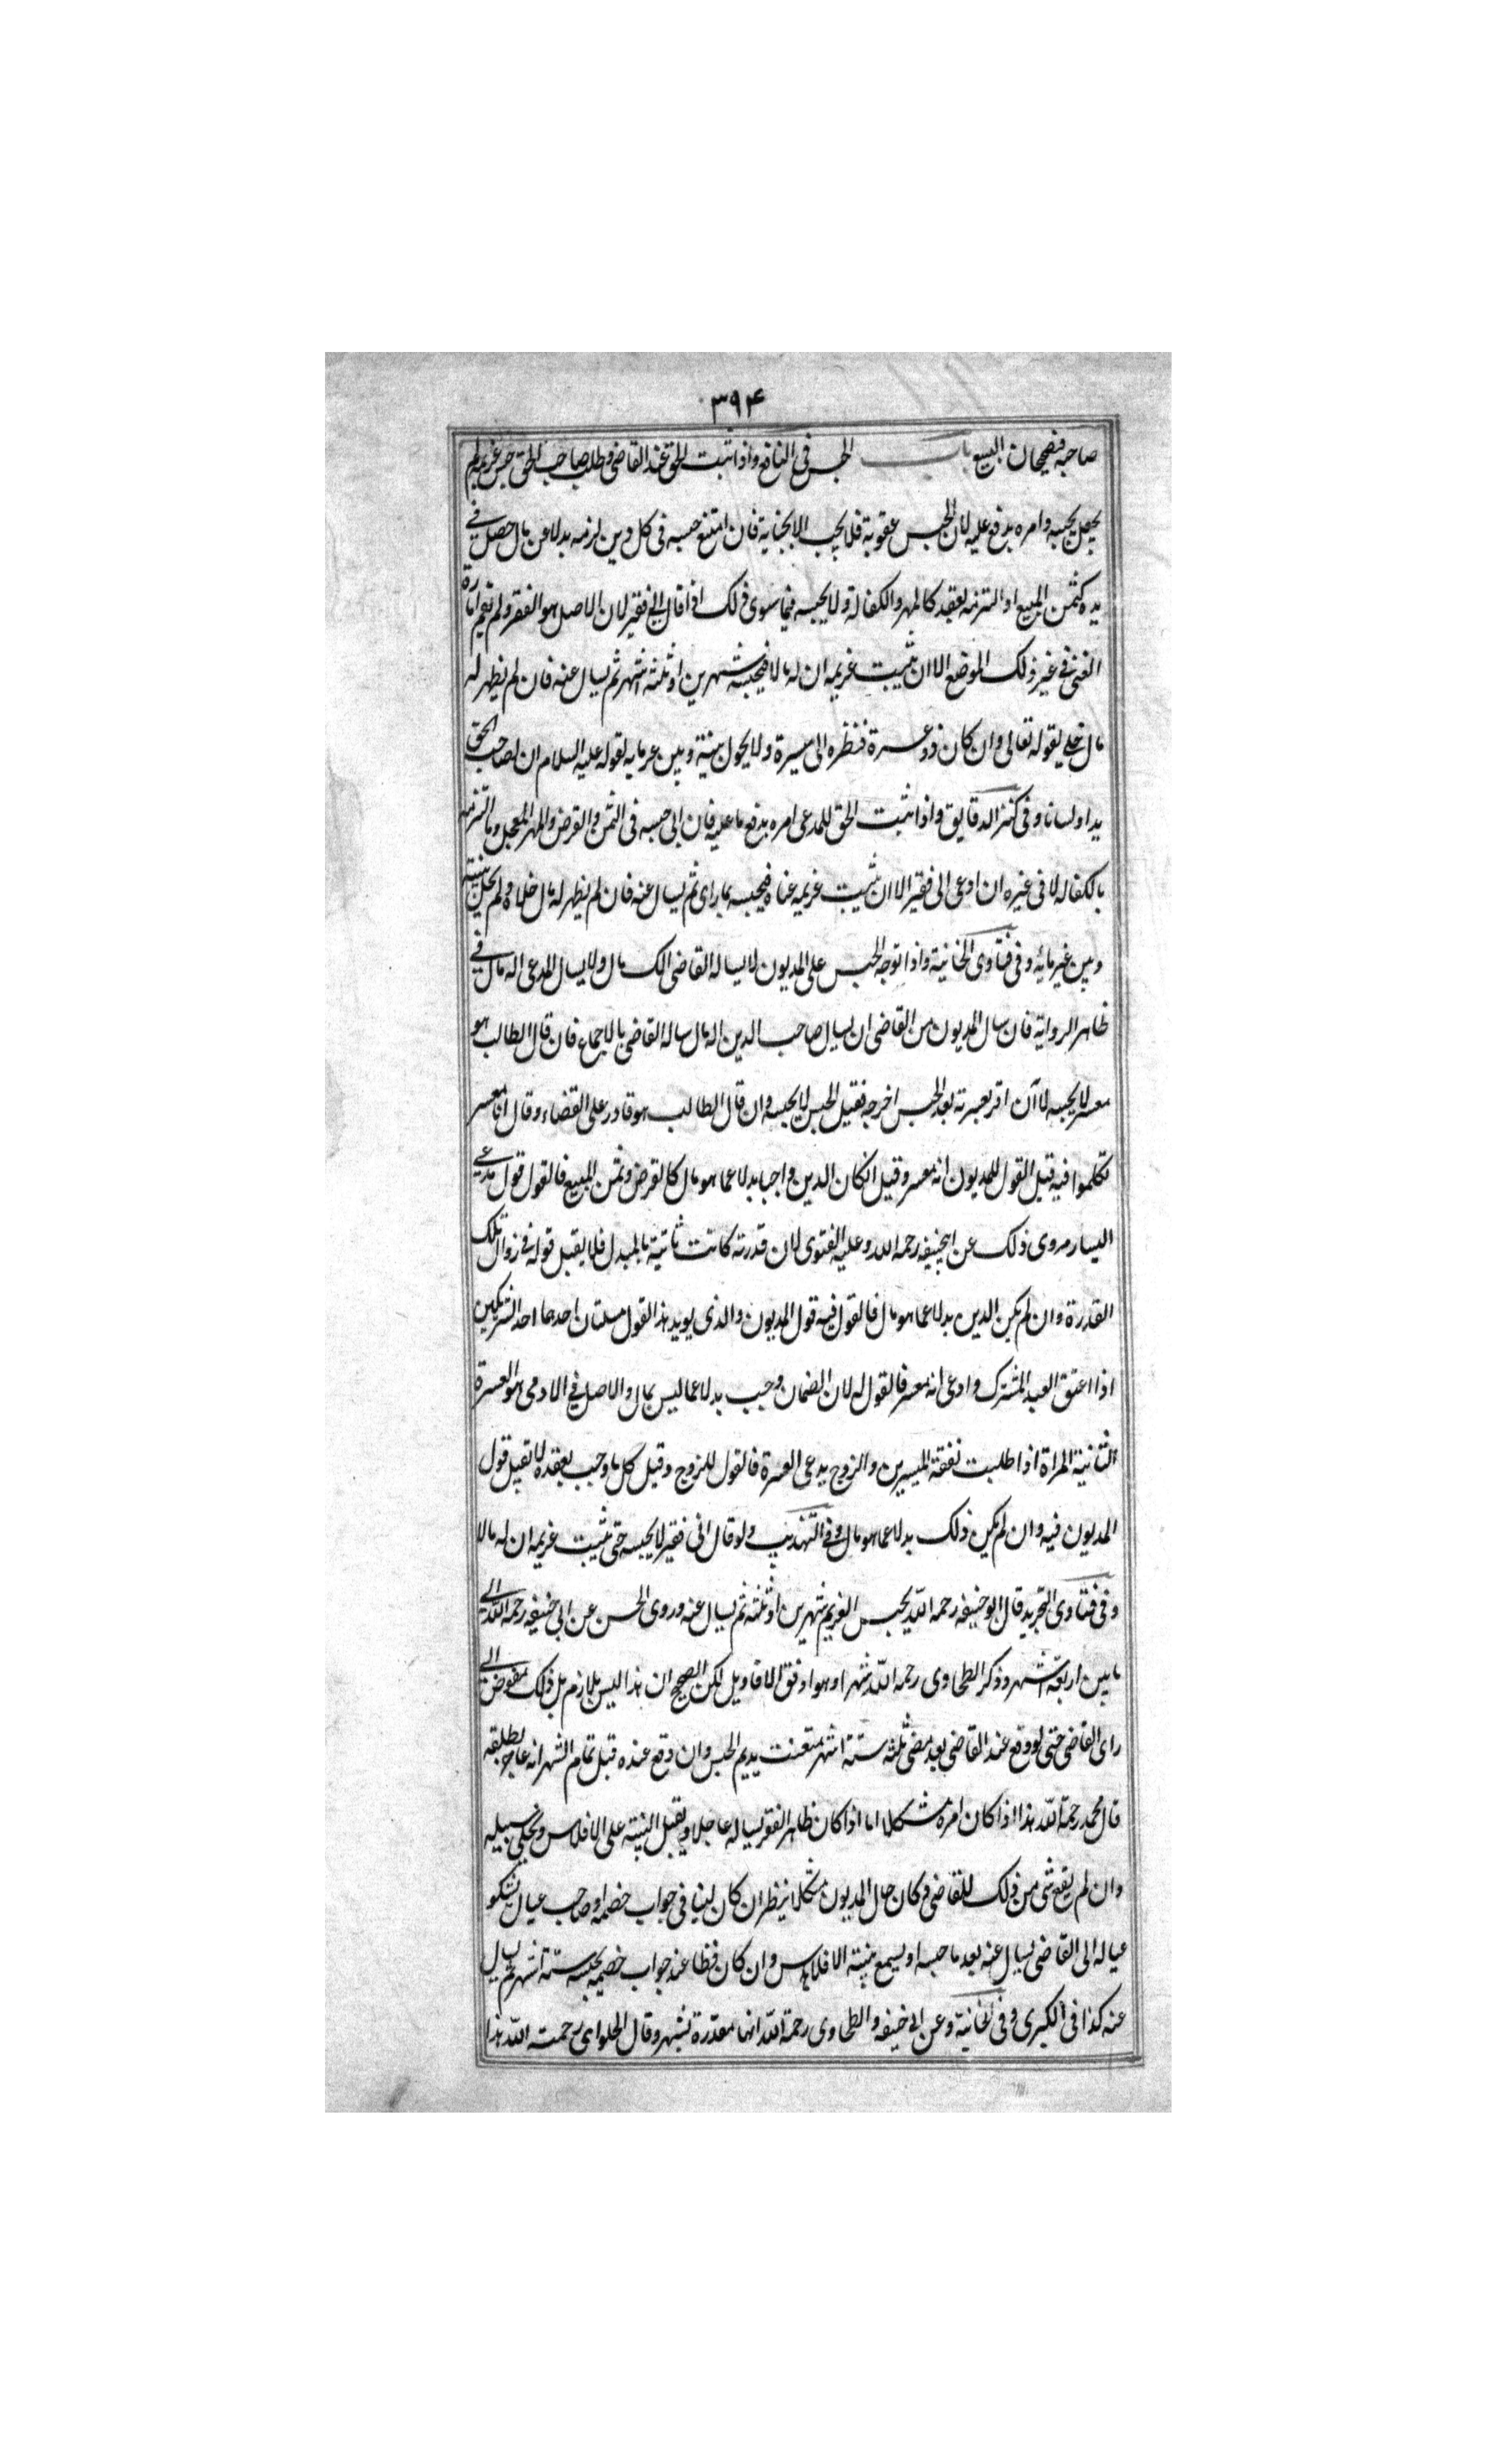 ٣٩٤
صاحبه فيصحان البيع باب الحبس فى النافع واذا ثبت الحق عند القاضى وطلب صاحب الحق حبس غريمه لم
يعجل بحبسه وامره بدفع عليه لان الحبس عقوبة فلا يجب الا بجناية فان امتنع حبسه فى كل دين لزمه بدلا عن مال حصل فى
يده كثمن المبيع او التزمه بعقد كالمهر والكفالة ولا يحبسه فيما سوى ذلك اذا قال انى فقير لان الاصل هو الفقر ولم تقم امارة
الغنى فى غير ذلك الموضع الا ان يثبت غريمه ان له مالا فيحبسه شهرين او ثلثة اشهر ثم يسال عنه فان لم يظهر له
مال خلى لقوله تعالى وان كان ذو عسرة فنظرة الى ميسرة ولا يحول بينه وبين غرمايه لقوله عليه السلام ان لصاحب الحق
يدا ولسانا وفى كنز الدقايق واذا ثبت الحق للمدعى امره بدفع ما عليه فان ابى حبسه فى الثمن والقرض والمهر المعجل وما التزمه
بالكفاله لا فى غيره ان ادعى انى فقير الا ان يثبت غريمه غناه فيحبسه بما راى ثم يسال عنه فان لم يظهر له مال خلاه ولم يحل بينه
وبين غرمائه وفى فتاوى الخانية واذا توجه الحبس على المديون لا يساله القاضى الك مال ولا يسال المدعى اله مال فى
ظاهر الرواية فان سال المديون من القاضى ان يسال صاحب الدين اله مال ساله القاضى بالاجماع فان قال الطالب هو
معسر لا يحبسه لانه ان اقر بعسرته بعد الحبس اخرجه فقبل الحبس لا يحبسه وان قال الطالب هو قادر على القضاء وقال انا معسر
تكلموا فيه قيل القول للمديون انه معسر وقيل ان كان الدين واجبا بدلا عما هو مال كالقرض وثمن المبيع فالقول قول مدعى
اليسار مروى ذلك عن ابيحنيفه رحمه الله وعليه الفتوى لان قدرته كانت ثابتة بالمبدل فلا يقبل قوله فى زوال تلك
القدرة وان لم يكن الدين بدلا عما هو مال فالقول فيه قول المديون والذى يويد هذا القول مسلتان احدهما احد الشريكين
اذا اعتق العبد المشترك وادعى انه معسر فالقول له لان الضمان وجب بدلا عما ليس بمال والاصل فى الادمى هو العسرة
الثانية المراة اذا طلبت نفقة الميسرين والزوج يدعى العسرة فالقول للزوج وقيل كل ما وجب بعقده لا تقبل قول
المديون فيه وان لم يكن ذلك بدلا عما هو مال وفى التهذيب ولو قال انى فقير لا يحبسه حتى يثبت غريمه ان له مالا
وفى فتاوى التجريد قال ابو حنيفه رحمه الله يحبس الغريم شهرين او ثلثة ثم يسال عنه وروى الحسن عن ابى حنيفه رحمه الله الى
ما بين اربعة اشهر وذكر الطحاوى رحمه الله شهرا وهو اوفق الاقاويل لكن الصحيح ان هذا ليس بلازم بل ذلك مفوض الى
راى القاضى حتى لو وقع عند القاضى بعد مضى ثلثه ستة اشهر متعنت يديم الحبس وان وقع عنده قبل تمام الشهر انه عاجز يطلقه
قال محمد رحمة الله هذا اذا كان امره مشكلا اما اذا كان ظاهر الفقر يساله عاجلا ويقبل البينة على الافلاس ويخلى سبيله
وان لم يقع شى من ذلك للقاضى وكان حال المديون مشكلا ينظر ان كان لينا فى جواب خصمه او صاحب عيال يشكو
عياله الى القاضى يسال عنه بعد ما حبسه او يسمع بينة الافلاس وان كان فظا عند جواب خصمه يحبسه ستة اشهر ثم يسال
عنه كذا فى الكبرى وفى الخانية وعن ابى حنيفه والطحاوى رحمة الله انها مقدرة بشهر وقال الحلوانى رحمت الله هذا